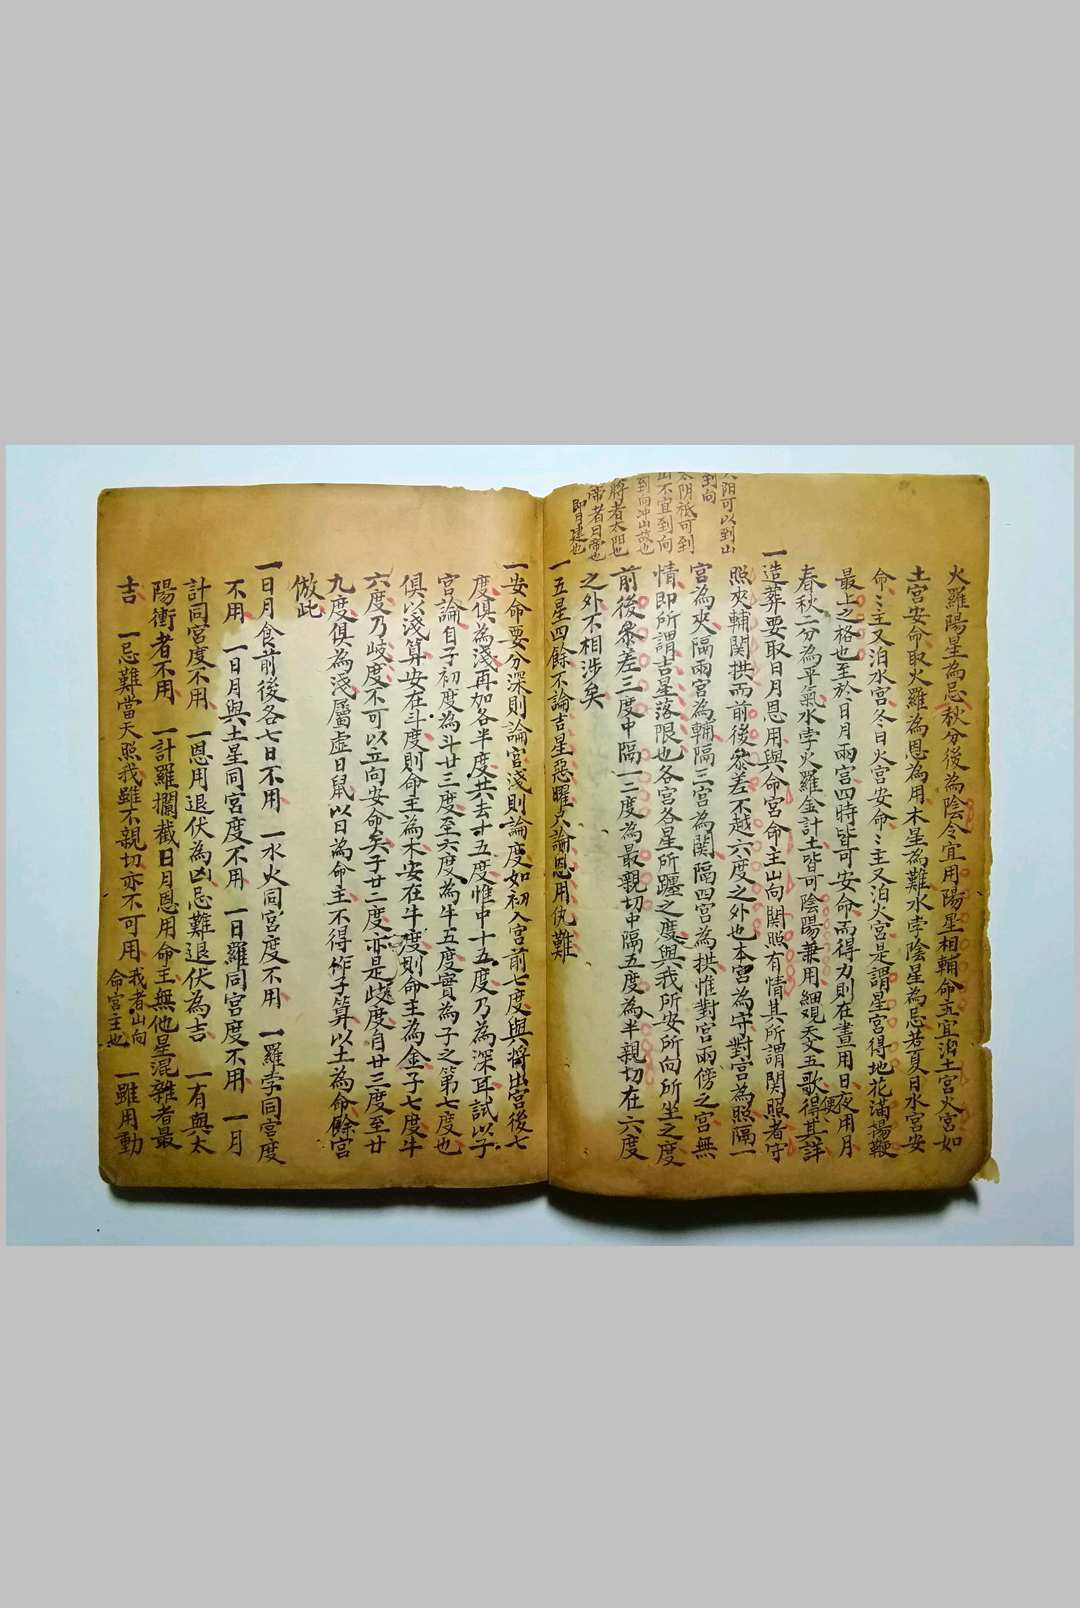 火羅陽星為忌秋分後為陰令宜用陽星相輔命主宜泊土宮火宮如
土宮安命取火羅為恩為用木星為難水孛陰星為忌若夏日水宮安
命〻主又泊水宮冬日火宮安命〻主又泊火宮是謂星宮得地花滿揚鞭
最上之格也至於日月兩宮四時皆可安命而得力則在晝用日夜用月
便
春秋二分為平氣水孛火羅金計土皆可陰陽兼用細覌天文五歌得其詳
一造葬要取日月恩用與命宮命主山向関照有情其所謂関照者守
照夾輔関拱而前後叅差不越六度之外也本宮為守對宮為照隔一
宮為夾隔兩宮為輔隔三宮為関隔四宮為拱惟對宮兩傍之宮無
情即所謂吉星落限也各宮各星所躔之度與我所安所向所坐之度
前後叅差三度中隔一二度為最親切中隔五度為半親切在六度
之外不相涉矣
一五星四餘不論吉星惡曜只論恩用仇難
太阳可以到山
到向
太阴祗可到
山不宜到向
到向冲山故也
將者太阳也
帝者日帝也
即日建也
一安命要分深則論宮淺則論度如初入宮前七度與將出宮後七
度俱為淺再加各半度共去十五度惟中十五度乃為深耳試以子
宮論自子初度為斗廿三度至六度為牛五度實為子之第七度也
俱以淺算安在斗度則命主為木安在牛度則命主為金子七度牛
六度乃岐度不可以立向安命矣子廿二度亦是岐度自廿三度至廿
九度俱為淺屬虛日鼠以日為命主不得作子算以土為命餘宮
倣此
一日月食前後各七日不用 一水火同宮度不用 一羅孛同宮度
不用 一日月與土星同宮度不用 一日羅同宮度不用 一月
計同宮度不用 一恩用退伏為凶忌難退伏為吉 一有與太
陽衝者不用 一計羅攔截日月恩用命主無他星混雜者最
吉 一忌難當天照我雖不親切亦不可用 我者山向命宮主也 一雖用動